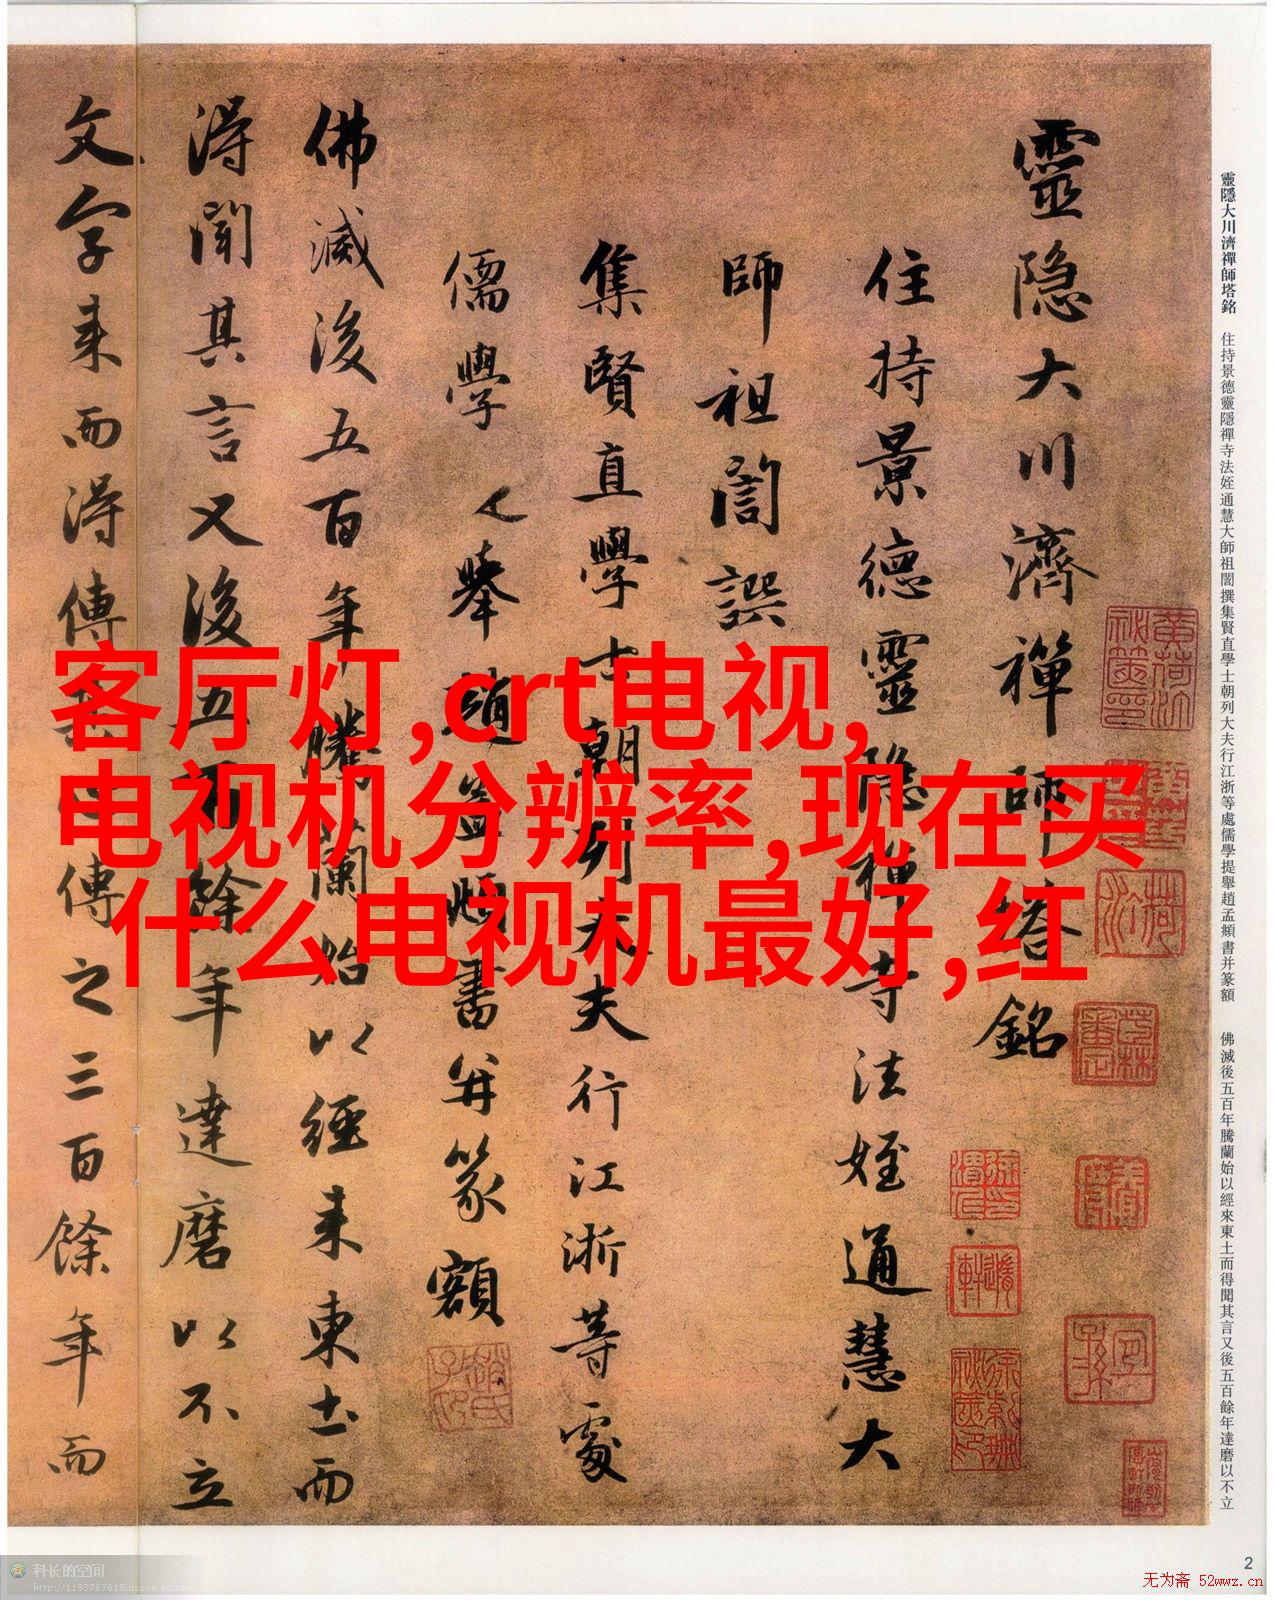 靈隱大川濟禪師塔銘
住持景德靈隱禪寺法姪通慧大
師祖誾譔
集賢直學士朝列大夫行江浙等處
儒學提舉趙孟頫書并篆額
佛滅後五百年騰蘭始以經來東土而
得聞其言又後五百餘年達磨以不立
文字來而得傳其心傳之三百餘年而
客厅灯,crt电视,
电视机分辨率,现在买
什么电视机最好,红
靈隱大川濟禪師塔銘 住持景德靈隱禪寺法姪通慧大師祖誾撰集賢直學士朝列大夫行江浙等處儒學提舉趙孟頫書并篆額 佛滅後五百年騰蘭始以經來東土而得聞其言又後五百餘年達磨以不立
2
科长的空间
http://1193767618.qzone.qq.com
无为斋 52wwz.cn